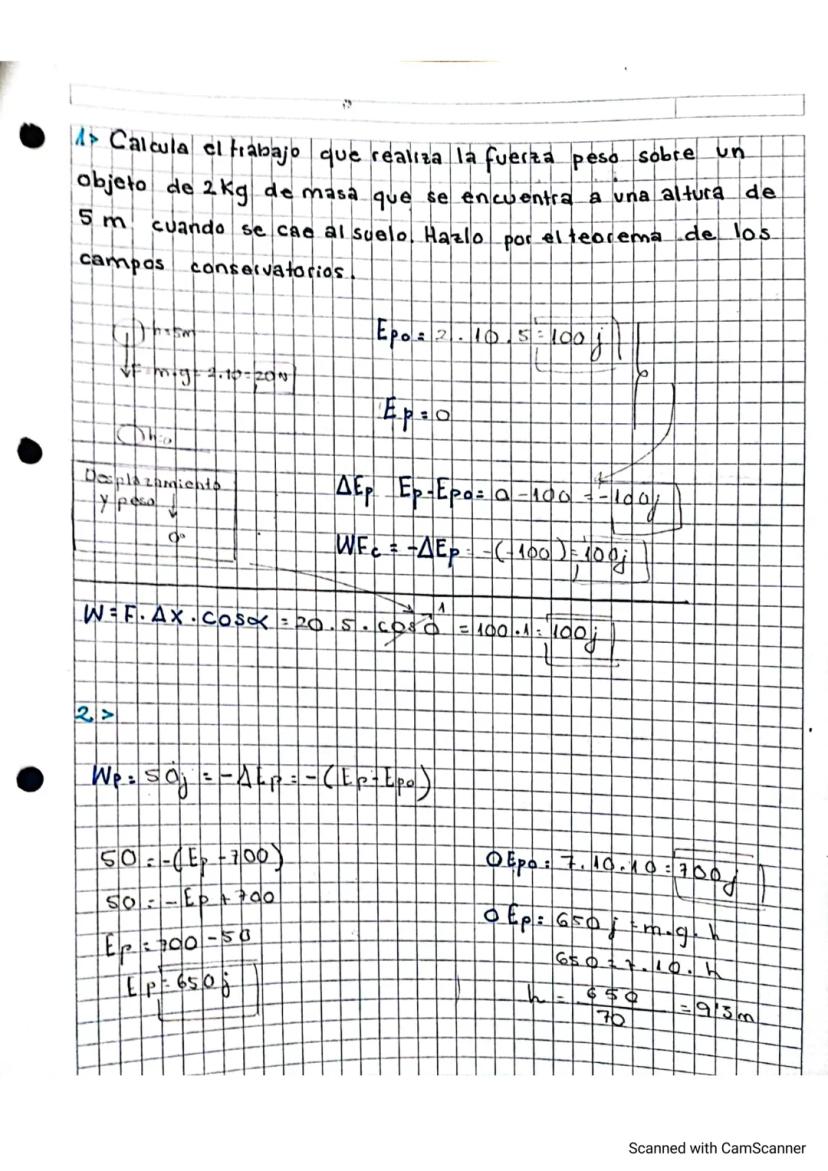 1> Calcula el trabajo que realiza la fuerza peso sobre un
objeto de 2Kg de masa que se encuentra a una altura de
5 m cuando se cae al suelo. Hazlo por el teorema de los
campos conservatorios.
h=5m
F m.g= 2.10=20N
h=0
Epo= 2.10.5=100j
Ep=0
Desplazamiento
y peso ↓
0°
ΔEp Ep-Epo= 0-100 =-100j
WFc = -ΔEp = -(-100)=100j
W=F.Δx.cosα = 20.5.cos0 1 =100.1=100j
2>
Wp= 50j = -ΔEp = -(Ep-Epo)
50 =-(Ep-700)
50 = -Ep+700
Ep=700-50
Ep=650j
O Epo= 7.10.10=700j
O Ep= 650j =m.g.h
650=7.10.h
h = 650/70 =9'3m
Scanned with CamScanner